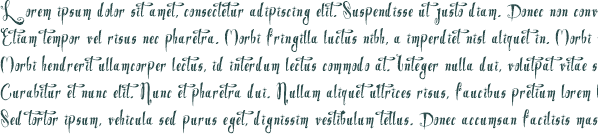 Lorem ipsum dolor sit amet, consectetur adipiscing elit. Suspendisse ut justo diam. Donec non conv
Etiam tempor vel risus nec pharetra. Morbi fringilla luctus nibh, a imperdiet nisl aliquet in. Morbi
Morbi hendrerit ullamcorper lectus, id interdum lectus commodo at. Integer nulla dui, volutpat vitae s
Curabitur et nunc elit. Nunc et pharetra dui. Nullam aliquet ultrices risus, faucibus pretium lorem
Sed tortor ipsum, vehicula sed purus eget, dignissim vestibulum tellus. Donec accumsan facilisis mas